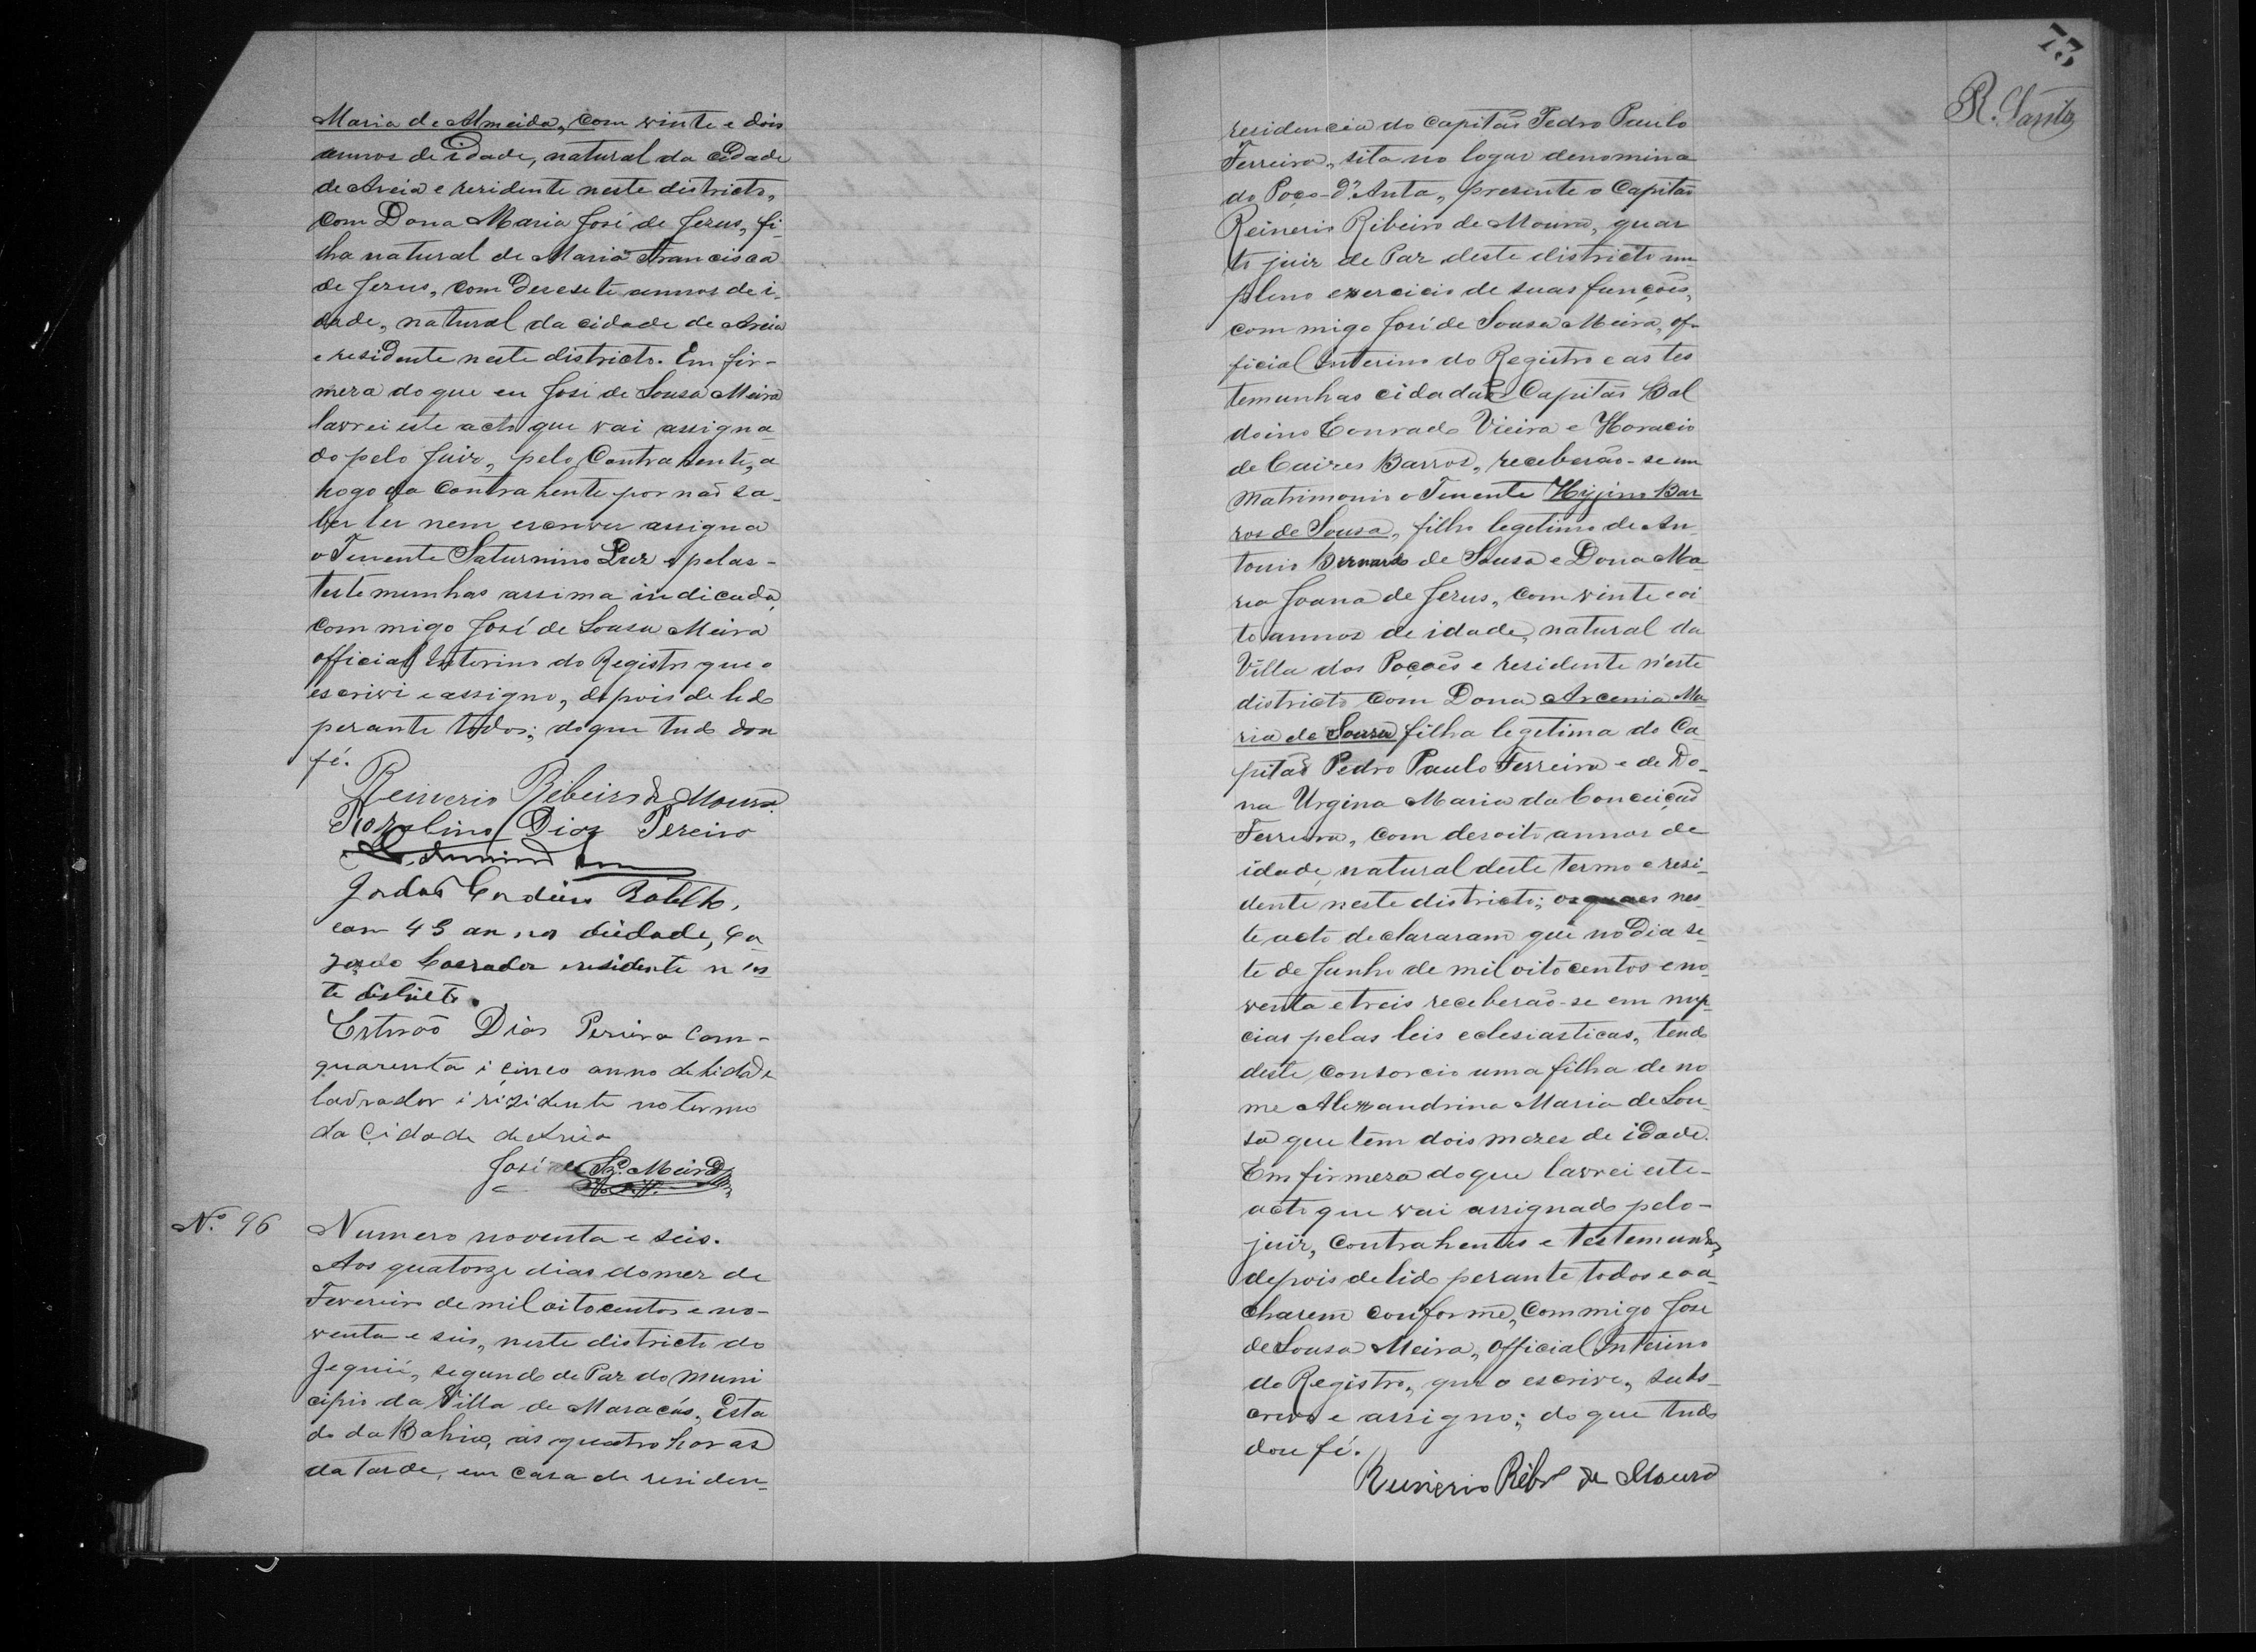 Maria de Almeida, com vinte e dois
annos de idade, natural da cidade
de Areia e residente neste districto,
com Dona Maria José de Jezus, fi-
lha natural de Maria Francisca
de Jezus, com desesete annos de i-
dade, natural da cidade de Areia
e residente neste districto. Em fir-
meza do que eu José de Sousa Meira
lavrei este acto que vai assigna-
do pelo Juiz, pelo Contrahente, a
rogo da Contrahente por não sa-
ber ler nem escrever assigna
o Tenente Saturnino Luz e pelas-
testemunhas assima indicada,
com migo José de Sousa Meira
official Interino do Registro que o
escrivi e assigno, depois de lido
perante todos; do que tudo dou
fé.
Reinerio Ribeiro de Moura
Rozolino Dias Pereira
Cordeiro Botelho,
com 45 annos de idade, Ca-
zado Lavrador e residente n'es-
te districto.
Estevão Dias Pereira com-
quarenta i cinco anno de hidade
lavrador i rizidente no termo
da Cidade de Areia
José de Sza. Meira
N.º 96
Numero noventa e seis.
Aos quatorze dias do mez de
Fevereiro de mil oitocentos e no-
venta e seis, neste districto do
Jequié, segundo de Paz do muni
cipio da Villa de Maracás, Esta
do da Bahia, as quatro horas
da tarde, em casa de residen-
73
R. Santos
residencia do Capitão Pedro Paulo
Ferreira, sita no logar denomina
do Poço-d'Anta, presente o Capitão
Reinerio Ribeiro de Moura, quar
to juiz de Paz deste districto em
pleno exercicio de suas funcções,
com migo José de Sousa Meira, of-
ficial Interino do Registro e as tes
temunhas cidadãos Capitão Bal
doino Conrado Vieira e Horacio
de Caires Barros, receberão-se em
Matrimonio o Tenente Hyjino Bar
ros de Sousa, filho legetimo de An
tonio Bernardo de Sousa e Dona Ma-
ria Joana de Jezus, com vinte e oi
to annos de idade, natural da
Villa dos Poções e residente n'este
districto com Dona Arcenia Ma-
ria de Sousa filha legetima do Ca-
pitão Pedro Paulo Ferreira e de Do-
na Urgina Maria da Conceição
Ferreira, com desoito annos de
idade, natural deste termo e resi-
dente neste districto; os quaes nes-
te acto declararam que no Dia se-
te de Junho de mil oitocentos e no-
venta e treis receberão-se em nup-
cias pelas leis eclesiasticas, tendo
deste consorcio uma filha de no
me Alexandrina Maria de Sou-
sa que têm dois mezes de idade.
Em firmeza do que lavrei este-
acto que vai assignado pelo-
juiz, Contrahentes e testemunhas,
depois de lido perante todos e o a-
charem conforme, Commigo José
de Sousa Meira, official Interino
do Registro, que o escrive, subs-
crevo e assigno; do que tudo
dou fé.
Reinerio Ribro de Moura